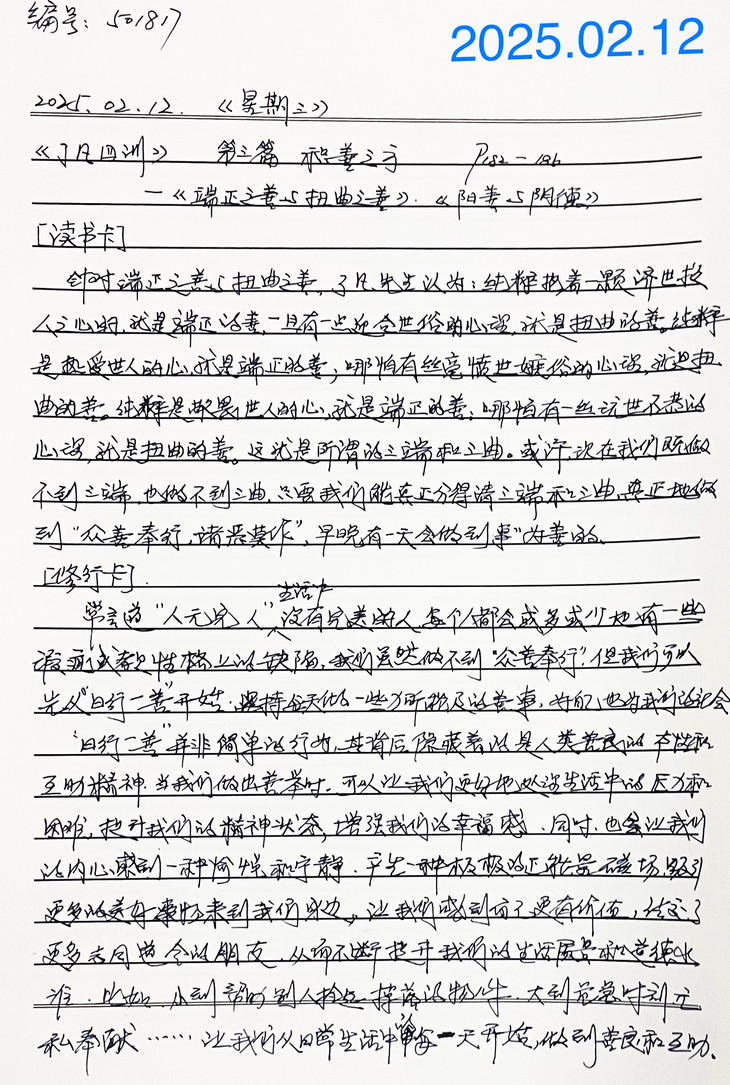 编号：501817
2025.02.12
2025.02.12. 《星期三》
《了凡四训》 第三篇 积善之方 P182-186
—《端正之善与扭曲之善》.《阳善与阴德》
[读书卡]
针对端正之善与扭曲之善，了凡先生认为：纯粹抱着一颗济世救
人之心的，就是端正的善，一旦有一点迎合世俗的心理，就是扭曲的善。纯粹
是热爱世人的心，就是端正的善；哪怕有丝毫愤世嫉俗的心理，就是扭
曲的善。纯粹是恭敬世人的心，就是端正的善；哪怕有一丝玩世不恭的
心理，就是扭曲的善。这就是所谓的三端和三曲。或许，现在我们既做
不到三端，也做不到三曲，只要我们能真正分得清三端和三曲，真正地做
到“众善奉行，诸恶莫作”，早晚有一天会做到事事好善的。
[修行卡].
常言道“人无完人”，生活中没有完美的人，每个人都会或多或少地有一些
瑕疵或者是性格上的缺陷，我们虽然做不到“众善奉行”，但我们可以
先从“日行一善”开始，坚持每天做一些力所能及的善事，为自己也为我们的社会
“日行一善”并非简单的行为，其背后隐藏着的是人类善良的本性和
互助精神，当我们做出善举时，可以让我们更好地处理生活中的压力和
困难，提升我们的精神状态，增强我们的幸福感，同时，也会让我们
的内心感到一种愉悦和宁静，产生一种积极的正能量磁场，吸引
更多的美好事物来到我们身边，让我们感到自己更有价值，结交了
更多志同道合的朋友，从而不断提升我们的生活质量和道德水
准，比如，小到帮助别人捡起掉落的物件，大到危急时刻无
私奉献……让我们从日常生活中的每一天开始，做到善良和互助。